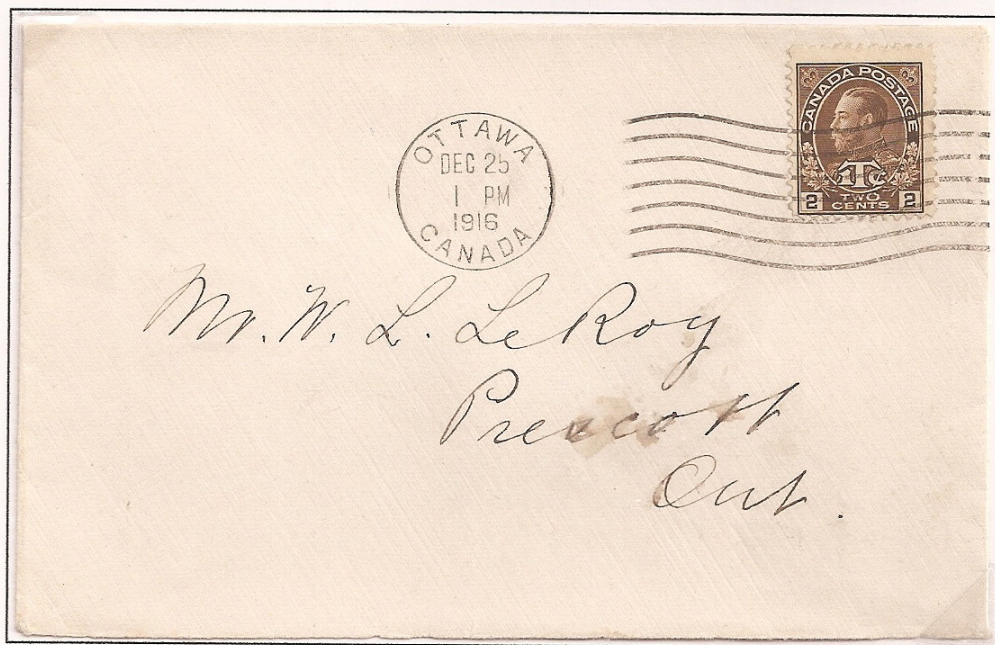 OTTAWA
DEC 25
1 PM
1916
CANADA
CANADA POSTAGE
1Tc
2 TWO CENTS 2
Mr. W. L. LeRoy
Prescott
Ont.